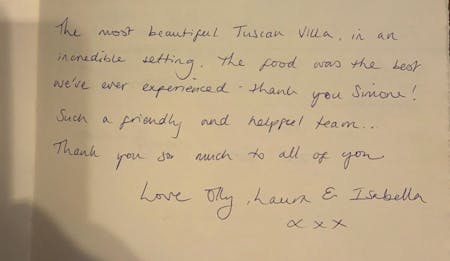 The most beautiful Tuscan Villa, in an
incredible setting. The food was the best
we've ever experienced - thank you Simone!
Such a friendly and helpful team...
Thank you so much to all of you
Love Olly, Laura & Isabella
x x x